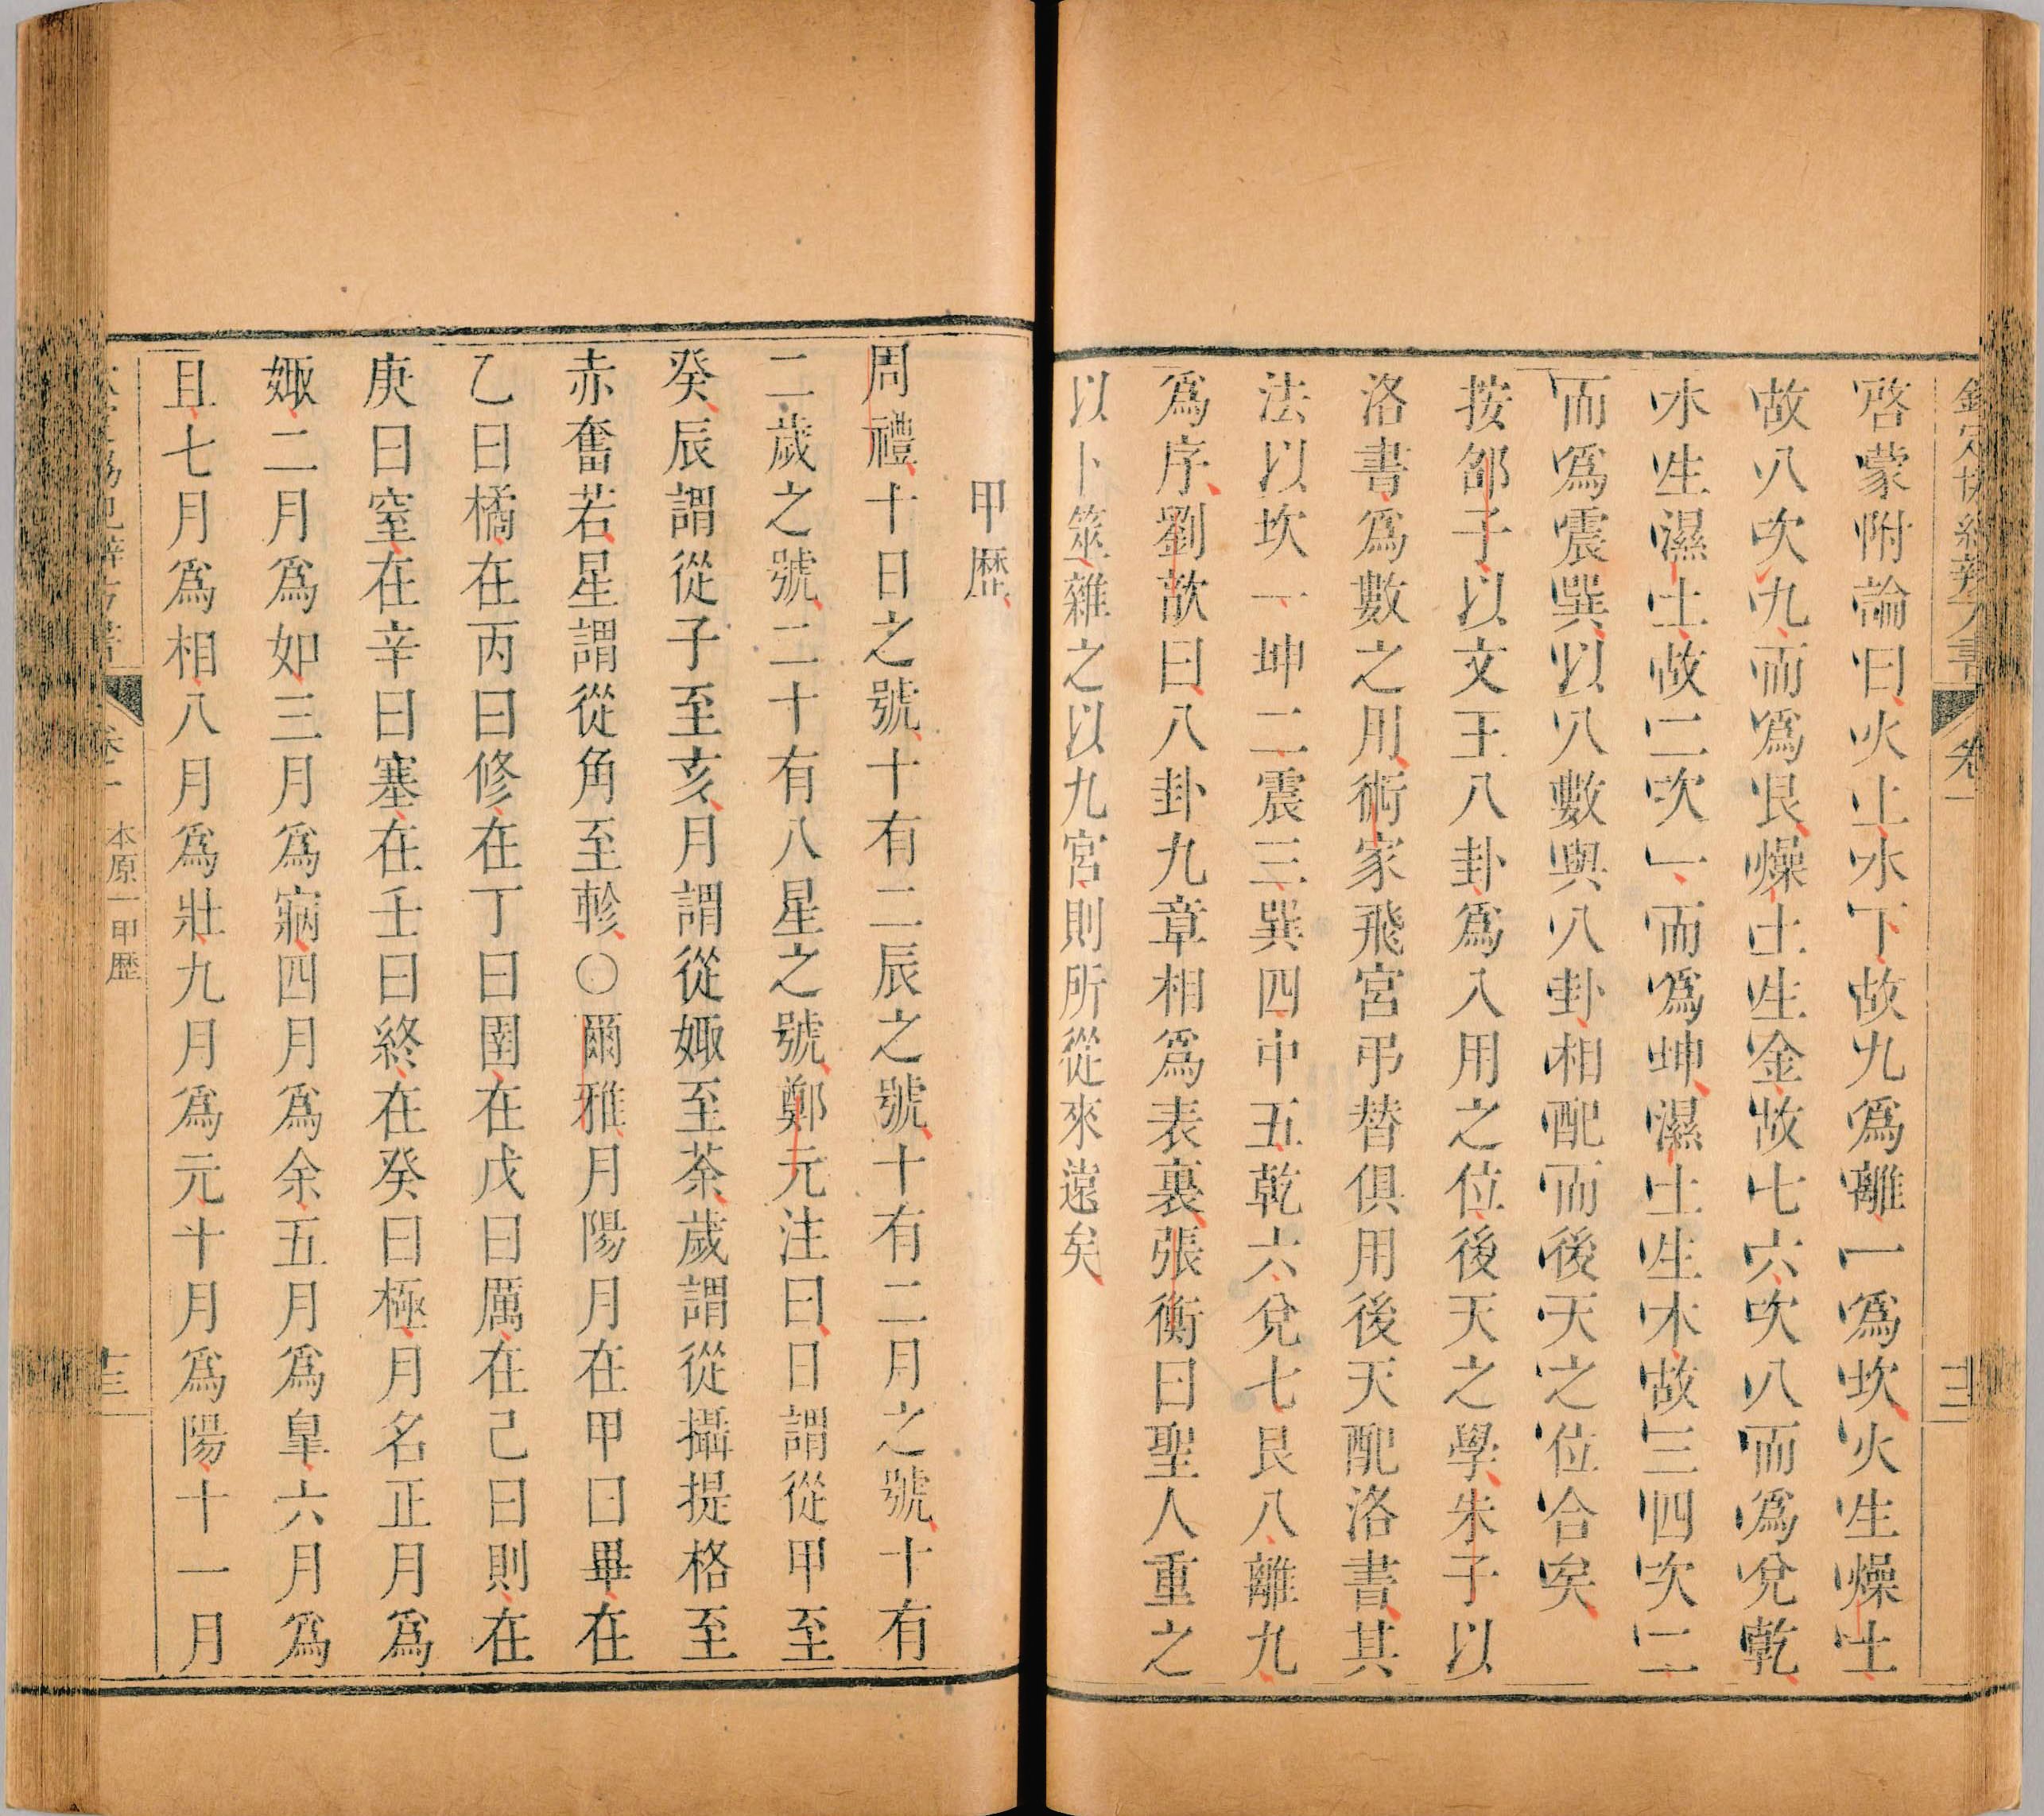 卷一
啓蒙附論曰火上水下故九為離一為坎火生燥土
故八次九而為艮燥土生金故七六次八而為兌乾
水生濕土故二次一而為坤濕土生木故三四次二
而為震巽以八數與八卦相配而後天之位合矣
按邵子以文王八卦為入用之位後天之學朱子以
洛書為數之用術家飛宮弔替俱用後天配洛書其
法以坎一坤二震三巽四中五乾六兌七艮八離九
為序劉歆曰八卦九章相為表裏張衡曰聖人重之
以卜筮雜之以九宮則所從來遠矣
甲歷
周禮十日之號十有二辰之號十有二月之號十有
二歲之號二十有八星之號鄭元注曰日謂從甲至
癸辰謂從子至亥月謂從娵至荼歲謂從攝提格至
赤奮若星謂從角至軫〇爾雅月陽月在甲曰畢在
乙曰橘在丙曰修在丁曰圉在戊曰厲在己曰則在
庚曰窒在辛曰塞在壬曰終在癸曰極月名正月為
娵二月為如三月為寎四月為余五月為皐六月為
且七月為相八月為壯九月為元十月為陽十一月
本原一甲歷